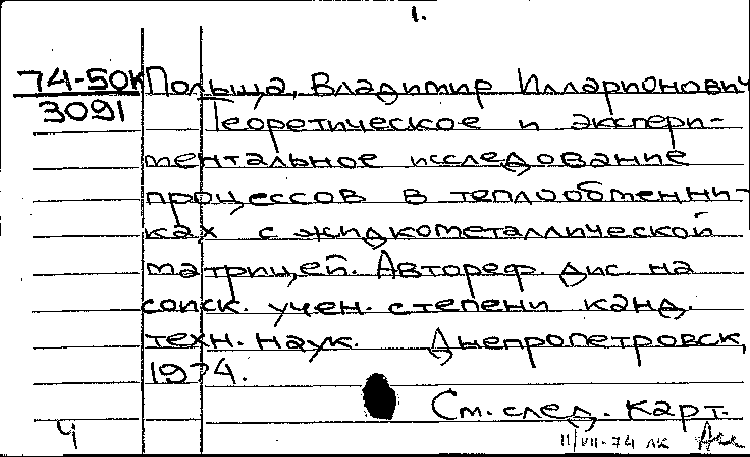 1.
74-50К Польща, Владимир Илларионович
3091 Теоретическое и экспери-
ментальное исследование
процессов в теплообменни-
ках с жидкометаллической
матрицей. Автореф. дис. на
соиск. учен. степени канд.
техн. наук. Днепропетровск,
1974.
См. след. карт.
Ч II/VII-74 лк